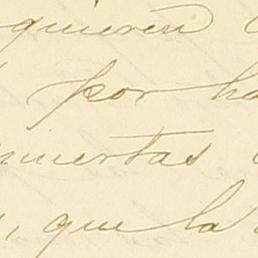 quieren
por ha
muertas
, que la